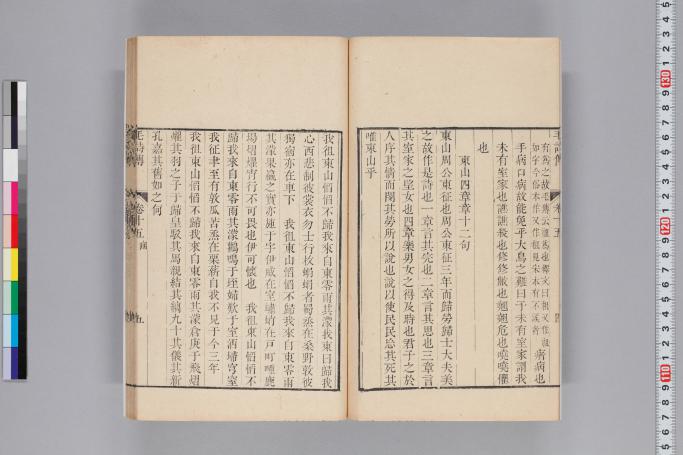 瘏病也
手病口病故能免乎大鳥之難曰予未有室家謂我
未有室家也譙譙殺也翛翛敝也翹翹危也嘵嘵懼
也
東山四章章十二句
東山周公東征也周公東征三年而歸勞歸士大夫美
之故作是詩也一章言其完也二章言其思也三章言
其室家之望女也四章樂男女之得及時也君子之於
人序其情而閔其勞所以說也說以使民民忘其死其
唯東山乎
我徂東山慆慆不歸我來自東零雨其濛我東曰歸我
心西悲制彼裳衣勿士行枚蜎蜎者蠋烝在桑野敦彼
獨宿亦在車下 我徂東山慆慆不歸我來自東零雨
其濛果臝之實亦施于宇伊威在室蠨蛸在戶町畽鹿
場熠燿宵行不可畏也伊可懷也 我徂東山慆慆不
歸我來自東零雨其濛鸛鳴于垤婦歎于室洒埽穹窒
我征聿至有敦瓜苦烝在栗薪自我不見于今三年
我徂東山慆慆不歸我來自東零雨其濛倉庚于飛熠
燿其羽之子于歸皇駁其馬親結其縭九十其儀其新
孔嘉其舊如之何
毛詩傳 卷十五 五